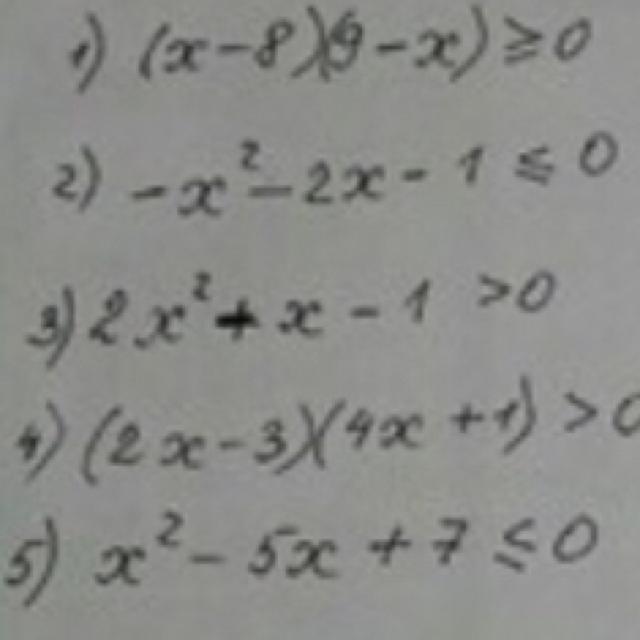 1) (x-8)(9-x) ≥ 0
2) -x²-2x-1 ≤ 0
3) 2x²+x-1 >0
4) (2x-3)(4x+1) > 0
5) x²-5x+7 ≤ 0